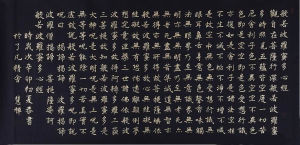 般若波羅蜜多心經
觀自在菩薩行深般若波羅蜜
多時照見五蘊皆空度一切苦
厄舍利子色不異空空不異色
色即是空空即是色受想行識
亦復如是舍利子是諸法空相
不生不滅不垢不淨不增不減
是故空中無色無受想行識無
眼耳鼻舌身意無色聲香味觸
法無眼界乃至無意識界無無
明亦無無明盡乃至無老死亦
無老死盡無苦集滅道無智亦
無得以無所得故菩提薩埵依
般若波羅蜜多故心無罣礙無
罣礙故無有恐怖遠離顛倒夢
想究竟涅槃三世諸佛依般若
波羅蜜多故得阿耨多羅三藐
三菩提故知般若波羅蜜多是
大神呪是大明呪是無上呪是
無等等呪能除一切苦真實不
虛故說般若波羅蜜多呪即說
呪曰 揭諦揭諦 波羅揭諦
波羅僧揭諦 菩提薩婆訶
般若波羅蜜多心經
時歲次辛卯初夏恭書
於了凡精舍